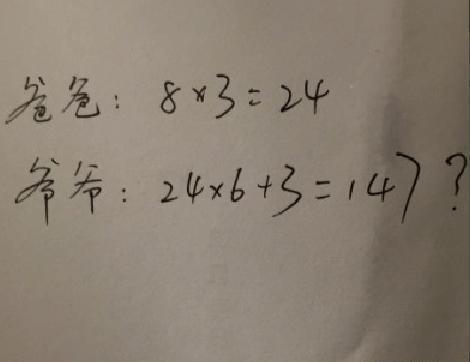 爸爸：8×3=24
爷爷：24×6+3=147？